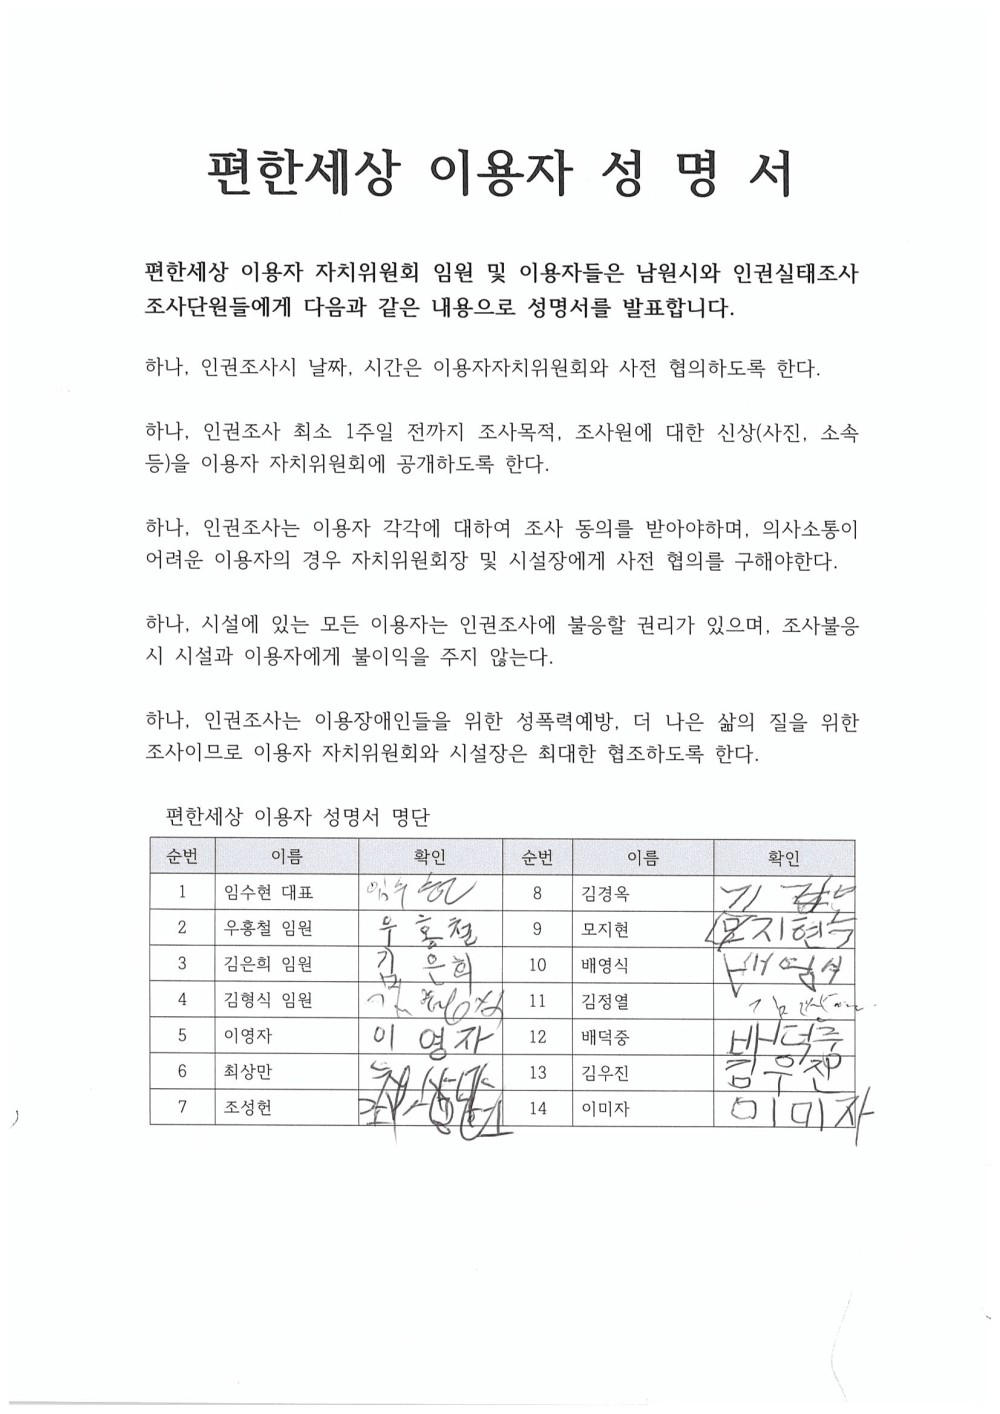 편한세상 이용자 성 명 서
편한세상 이용자 자치위원회 임원 및 이용자들은 남원시와 인권실태조사
조사단원들에게 다음과 같은 내용으로 성명서를 발표합니다.
하나, 인권조사시 날짜, 시간은 이용자자치위원회와 사전 협의하도록 한다.
하나, 인권조사 최소 1주일 전까지 조사목적, 조사원에 대한 신상(사진, 소속
등)을 이용자 자치위원회에 공개하도록 한다.
하나, 인권조사는 이용자 각각에 대하여 조사 동의를 받아야하며, 의사소통이
어려운 이용자의 경우 자치위원회장 및 시설장에게 사전 협의를 구해야한다.
하나, 시설에 있는 모든 이용자는 인권조사에 불응할 권리가 있으며, 조사불응
시 시설과 이용자에게 불이익을 주지 않는다.
하나, 인권조사는 이용장애인들을 위한 성폭력예방, 더 나은 삶의 질을 위한
조사이므로 이용자 자치위원회와 시설장은 최대한 협조하도록 한다.
편한세상 이용자 성명서 명단
순번 이름 확인 순번 이름 확인
1 임수현 대표 임수현 8 김경옥
2 우홍철 임원 우홍철 9 모지현 모지현
3 김은희 임원 김은희 10 배영식 배영식
4 김형식 임원 11 김정열
5 이영자 이영자 12 배덕중 배덕중
6 최상만 최상만 13 김우진 김우진
7 조성헌 14 이미자 이미자